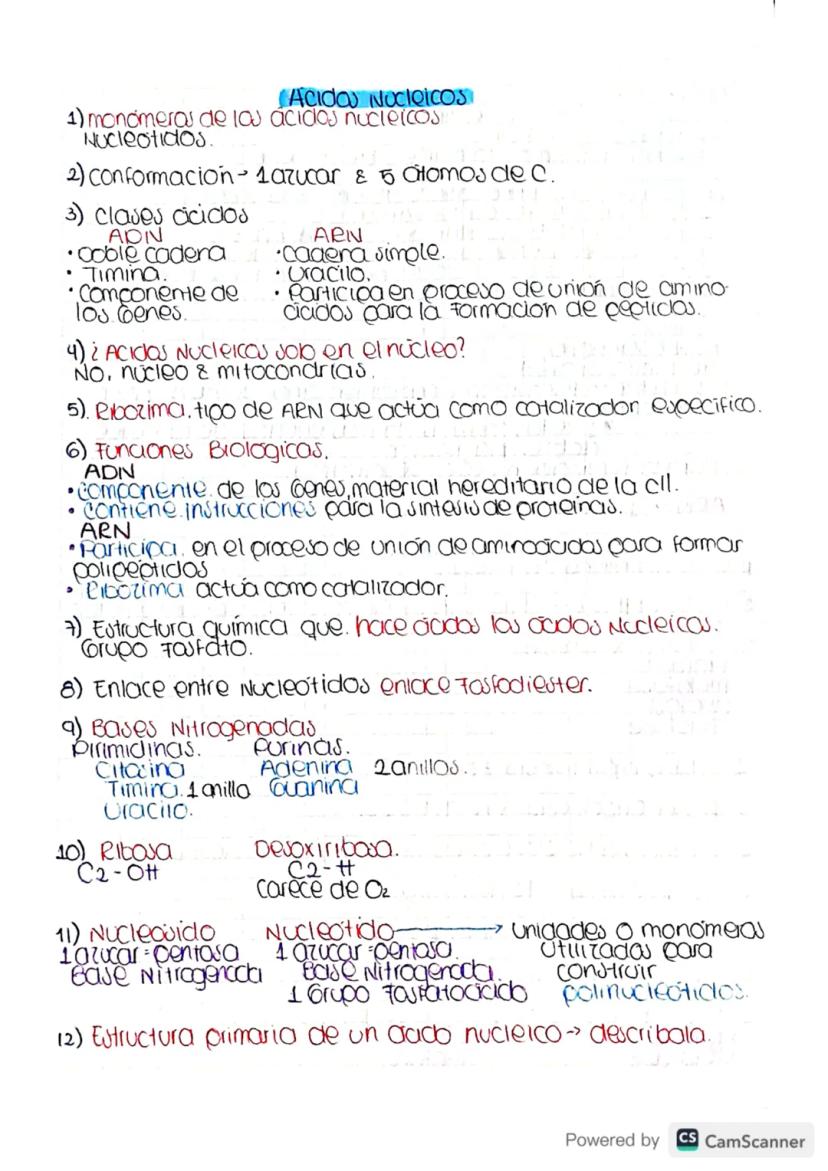 Ácidos Nucleicos
1) monómeros de los ácidos nucleicos
Nucleótidos.
2) Conformación → 1 azucar & 5 átomos de C.
3) Clases ácidos
ADN ARN
• Doble cadena • Cadena simple.
• Timina. • Uracilo.
• Componente de • Participa en proceso de unión de amino-
los Genes. ácidos para la formacion de peptidos.
4) ¿Acidos Nucleicos solo en el núcleo?
No, núcleo & mitocondrias.
5). Ribozima. tipo de ARN que actúa como catalizador especifico.
6) Funciones Biologicas.
ADN
• Componente de los Genes, material hereditario de la cll.
• Contiene instrucciones para la sintesis de proteinas.
ARN
• Participa en el proceso de unión de aminoácidos para formar
polipeptidos
• Ribozima actúa como catalizador.
7) Estructura química que hace ácidos los ácidos Nucleicos.
Grupo Fosfato.
8) Enlace entre Nucleótidos enlace Fosfodiester.
9) Bases Nitrogenadas
Pirimidinas. Purinas.
Citocina Adenina 2 anillos.
Timina. 1 anillo Guanina
Uracilo.
10) Ribosa Desoxiribosa.
C2-OH C2-H
Carece de O2
11) Nucleósido Nucleótido → Unidades o monómeros
1 azucar = pentosa 1 azucar = pentosa. Utilizadas para
Base Nitrogenada Base Nitrogenada. construir
1 Grupo Fosfatoácido polinucleótidos.
12) Estructura primaria de un ácido nucleico → describala.
Powered by CS CamScanner